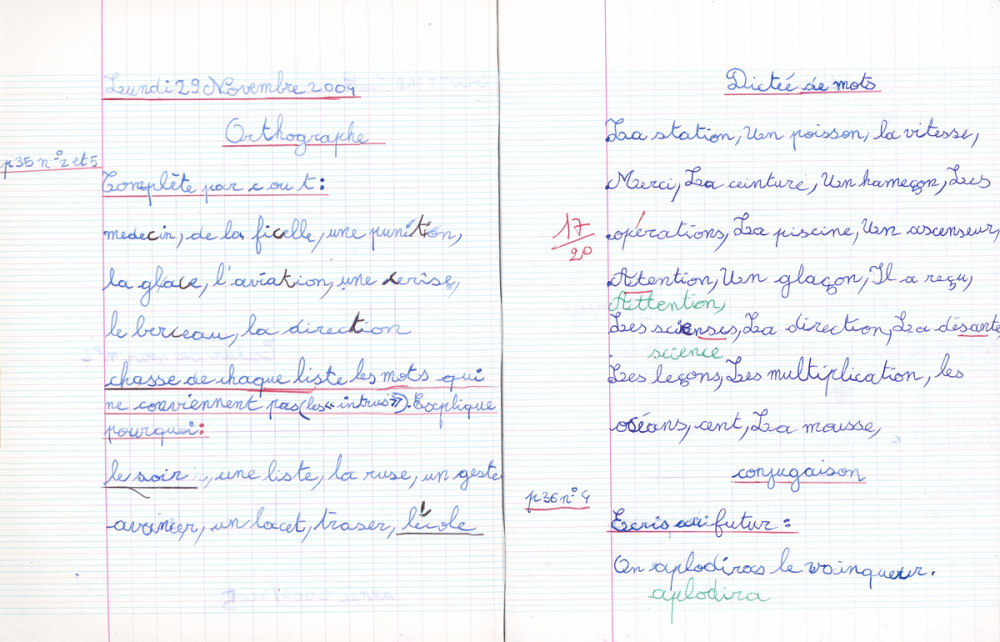 Lundi 29 Novembre 2004
Orthographe
p35 n°2 et 5
Complète par c ou t:
medecin, de la ficelle, une punition,
la glace, l'aviation, une cerise,
le berceau, la direction
chasse de chaque liste les mots qui
ne conviennent pas (les « intrus »). Explique
pourquoi:
le soir, une liste, la ruse, un geste
avancer, un lacet, traser, l'école
Dictée de mots
La station, Un poisson, la vitesse,
Merci, La ceinture, Un hameçon, Les
17/20
opérations, La piscine, Un ascenseur,
Attention, Un glaçon, Il a reçu,
Attention,
Les scienses, La direction, La désante
science
Les leçons, Les multiplication, les
océans, cent, La mousse,
conjugaison
p36 n°4
Ecris au futur:
On aplodiras le vainqueur.
aplodira